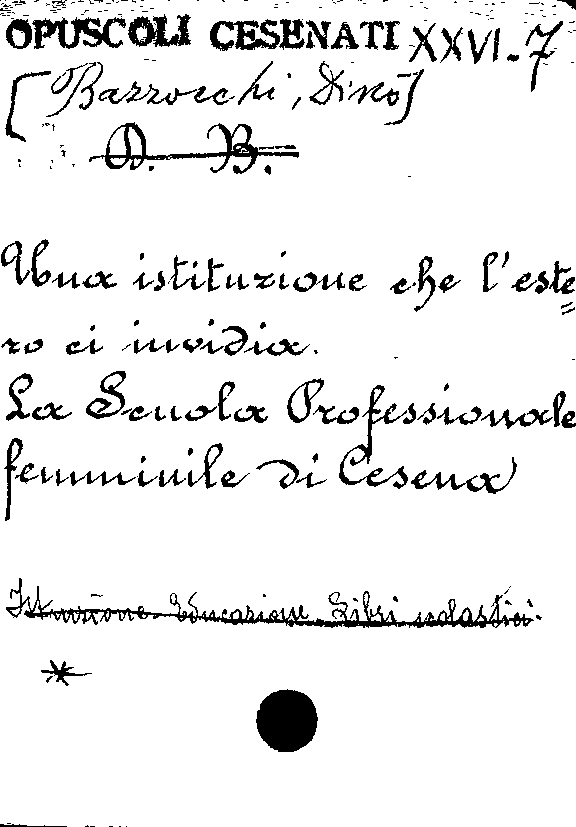 OPUSCOLI CESENATI XXVI-7
[Bazzocchi, Dino]
D. B.
Una istituzione che l'este=
ro ci invidia.
La Scuola Professionale
femminile di Cesena
Istruzione. Educazione. Libri scolastici.
*